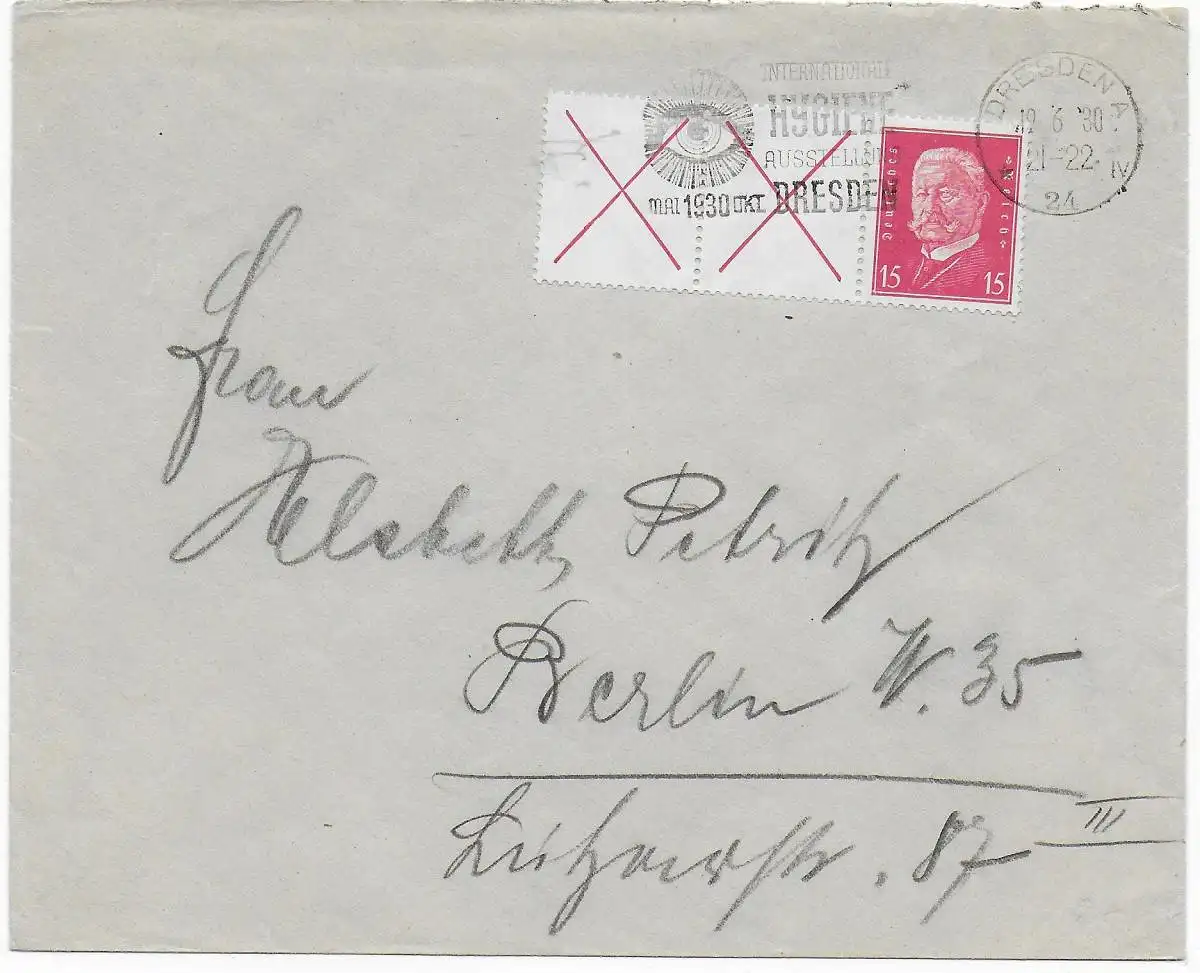 INTERNATIONALE
HYGIENE
AUSSTELLUNG
MAI 1930 OKT DRESDEN
DRESDEN A
19 6 30
21-22 N
24
Deutsches Reich
15 15
Frau
Elsbeth Petritz
Berlin W. 35
Lützowstr. 87 III